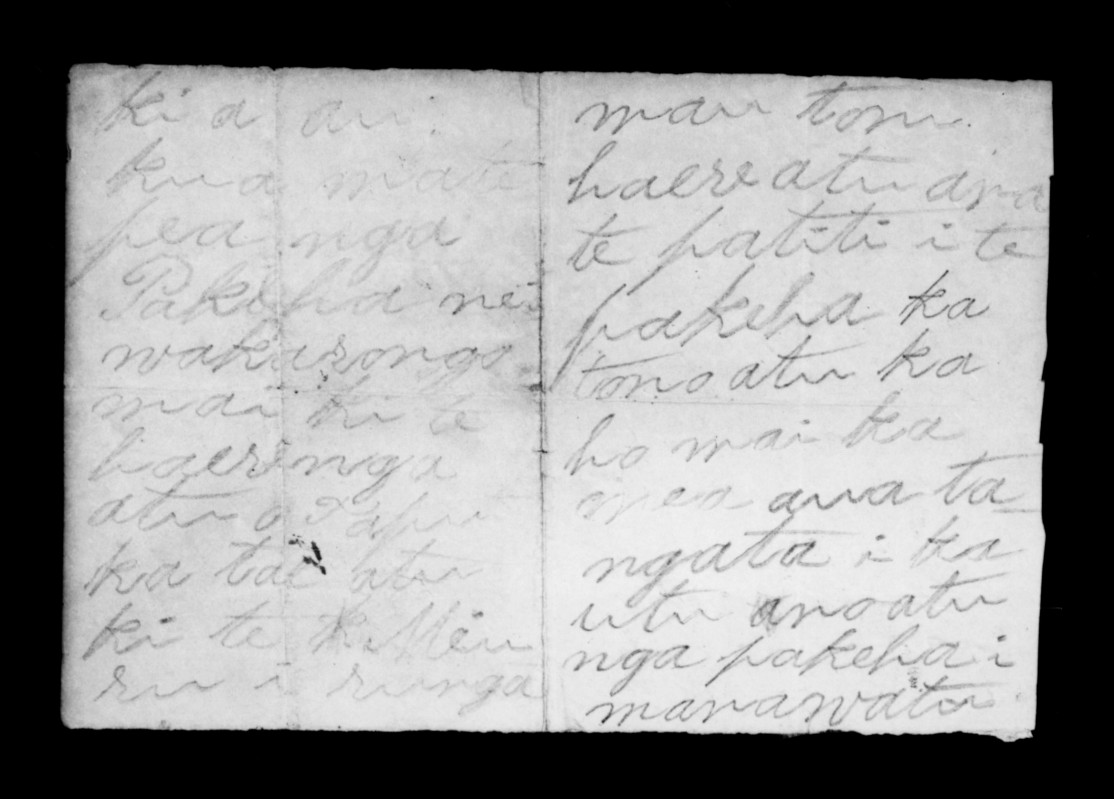 ki a au.
kua mate
pea nga
Pakeha nei
wakarongo
mai ki te
haeringa
atu o Taputu
ka tae atu
ki te Meu
ru i runga
mau tonu.
haereatu ana
te patiti i te
pakeha ka
tonoatu ka
ho mai ka
mea aua ta
ngata i ka
utu anoatu
nga pakeha i
manawatu